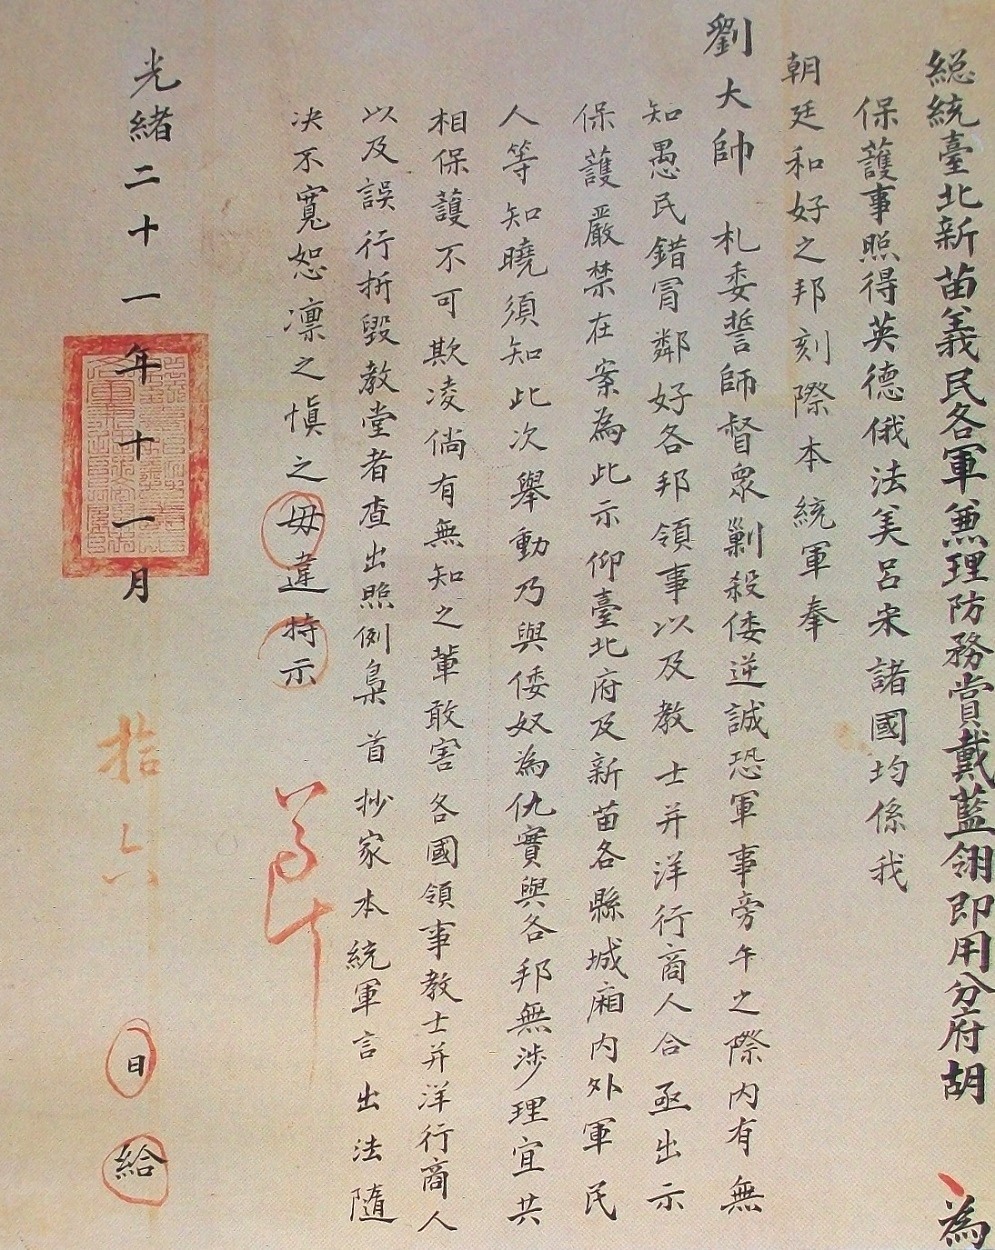 總統臺北新苗義民各軍兼理防務賞戴藍翎即用分府胡 為
保護事照得英德俄法美呂宋諸國均係我
朝廷和好之邦刻際本統軍奉
劉大帥 札委誓師督眾剿殺倭逆誠恐軍事旁午之際內有無
知愚民錯冒鄰好各邦領事以及教士并洋行商人合亟出示
保護嚴禁在案為此示仰臺北府及新苗各縣城廂內外軍民
人等知曉須知此次舉動乃與倭奴為仇實與各邦無涉理宜共
相保護不可欺凌倘有無知之輩敢害各國領事教士并洋行商人
以及誤行拆毀教堂者查出照例梟首抄家本統軍言出法隨
决不寬恕凛之慎之毋違特示
光緒二十一年十一月拾六日給